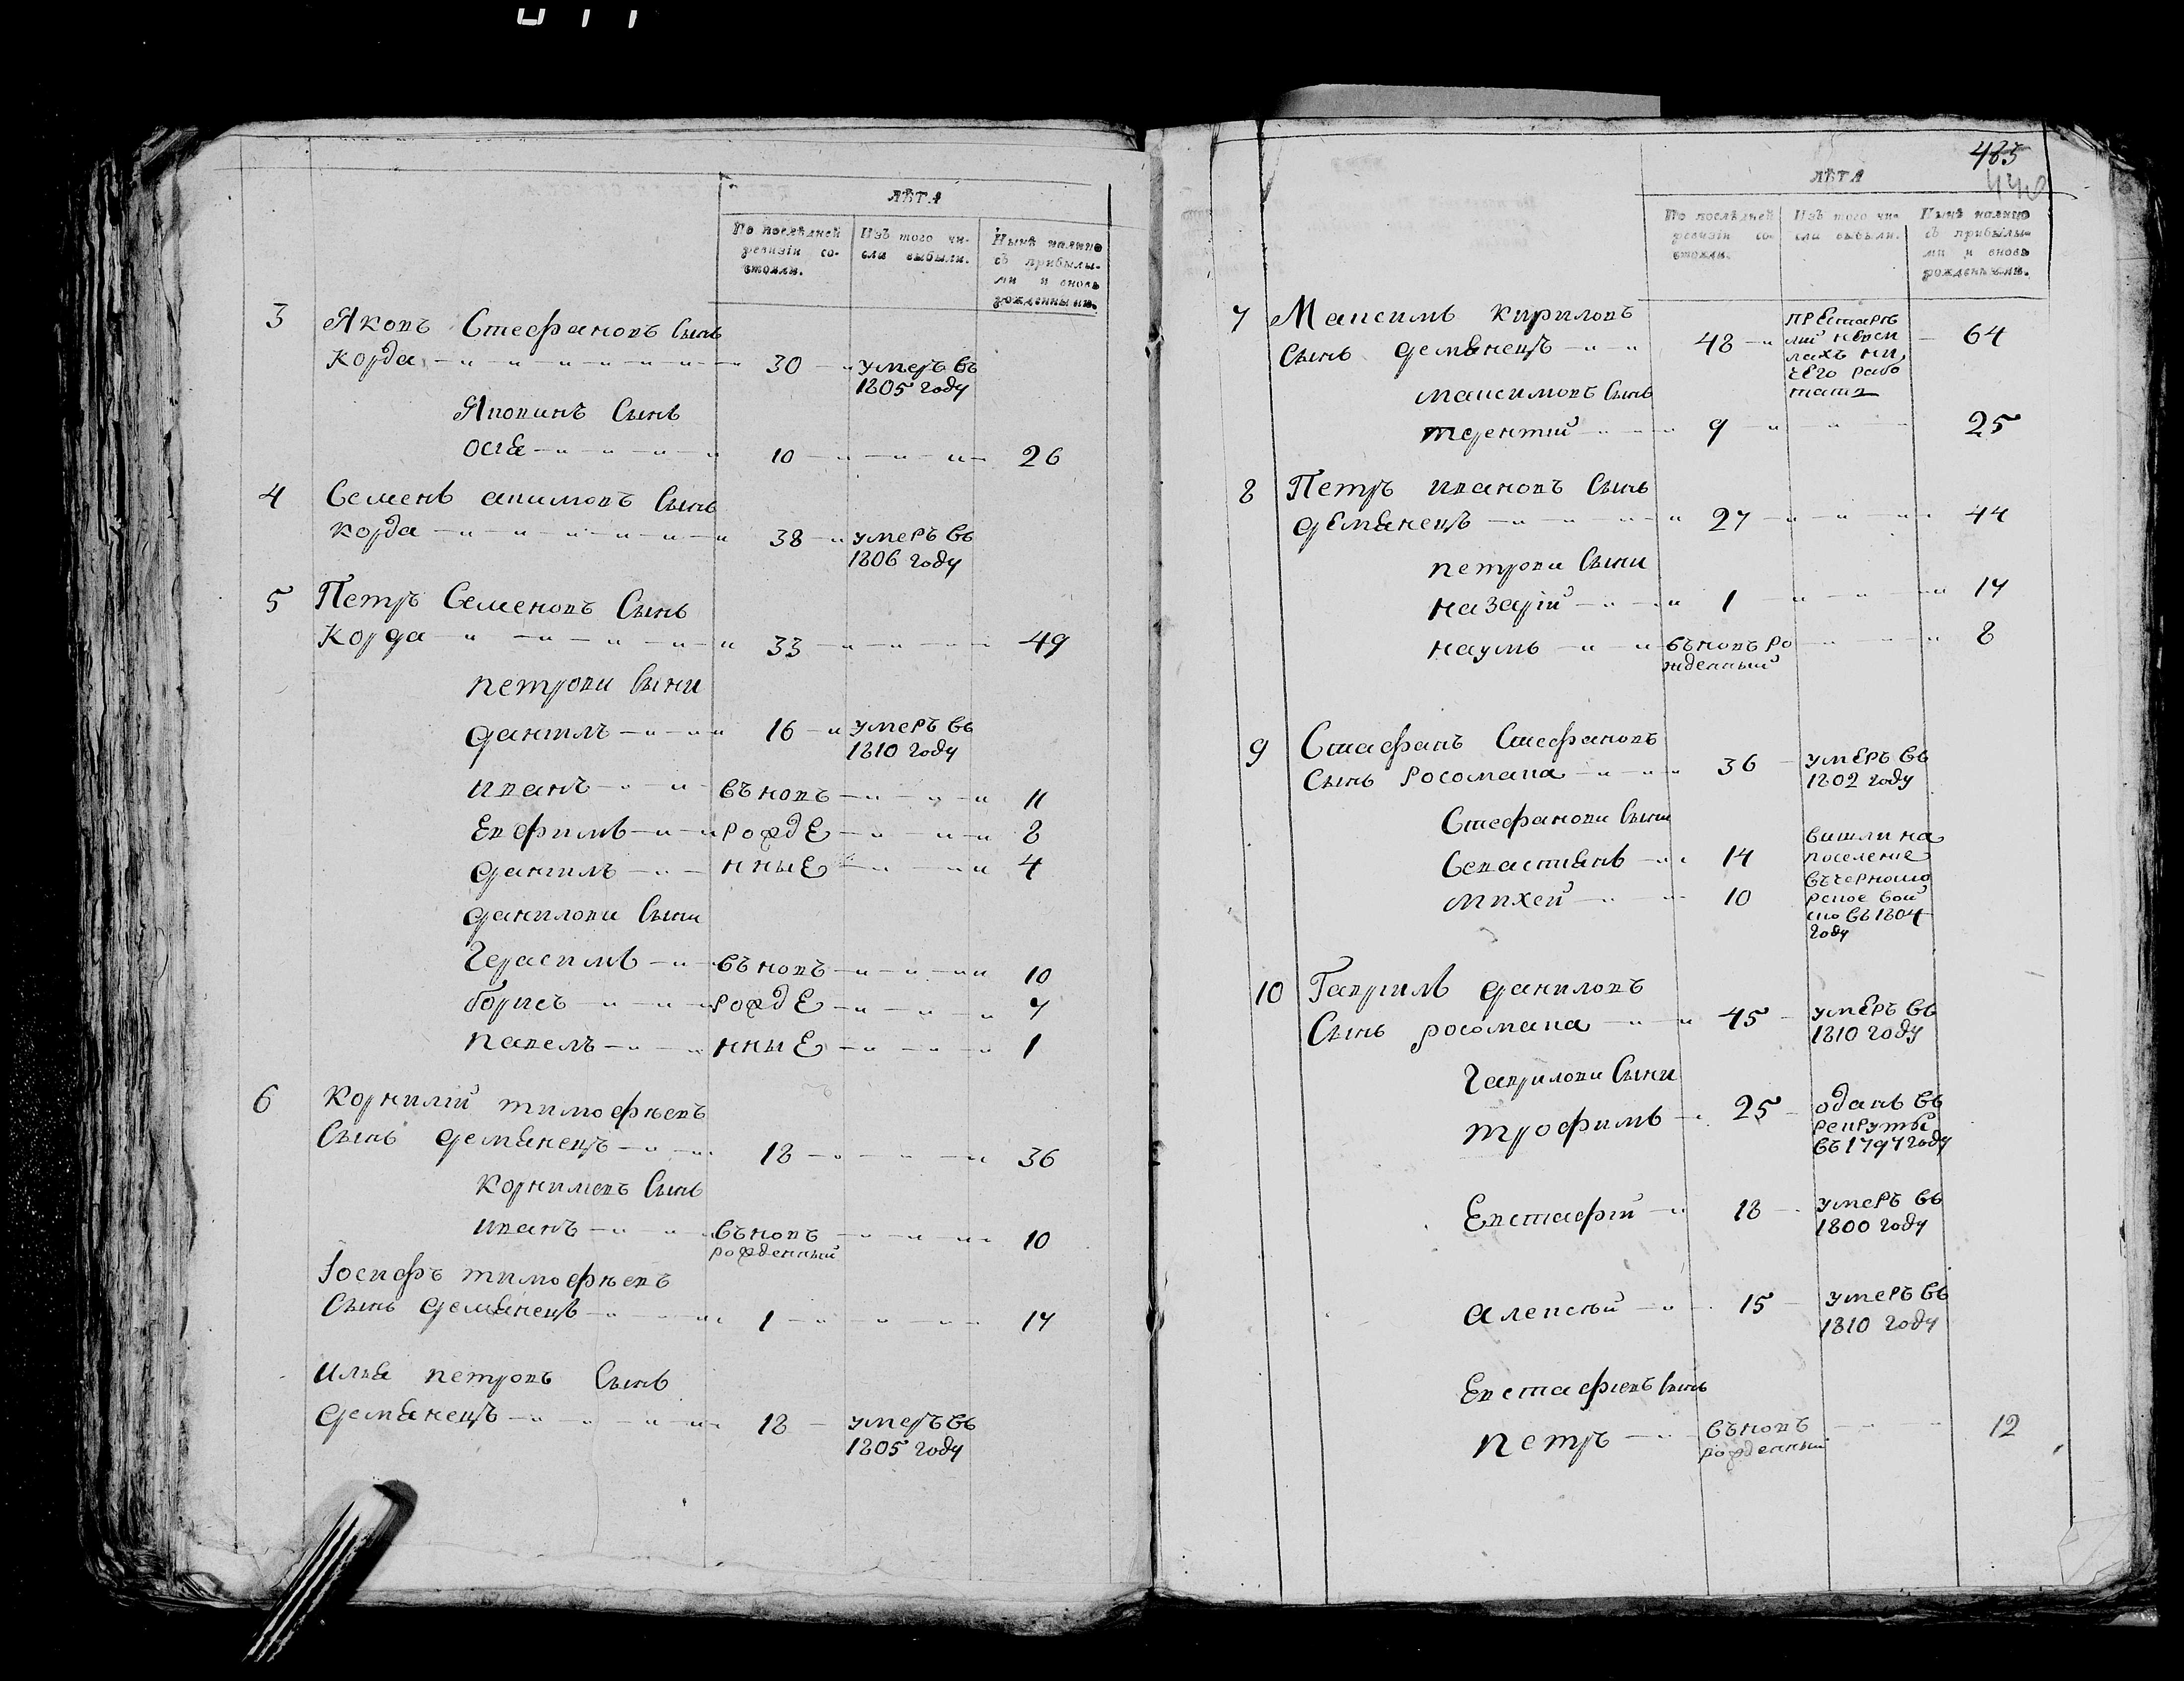 ЛѢТА
По послѣдней ревизіи со-стояли.
Изъ того чи-сла выбыли.
Нынѣ налицо съ прибылы-ми и вновь рожденными.
3 Яковъ Стефановъ Сынъ
Корда 30 умеръ въ
1805 году
Яковинъ Сынъ
Осія 10 26
4 Семенъ акимовъ Сынъ
Корда 38 умеръ въ
1806 году
5 Петръ Семеновъ Сынъ
Корда 33 49
петрови Сыни
данилъ 16 умеръ въ
1810 году
иванъ въновъ 11
Евфимъ рожде 8
данилъ нные 4
данилови Сыни
Герасимъ въновъ 10
борисъ рожде 7
павелъ нные 1
6 Корнилій тимофѣевъ
Сынъ демянецъ 18 36
Корниліевъ Сынъ
иванъ въновъ 10
рожденный
Іосифъ тимофѣевъ
Сынъ демянецъ 1 17
илія петровъ Сынъ
демянецъ 18 умеръ въ
1805 году
485
ЛѢТА
По послѣдней ревизіи со-стояли.
Изъ того чи-сла выбыли.
Нынѣ налицо съ прибылы-ми и вновь рожденными.
7 Максимъ кириловъ
Сынъ демянецъ 48 64
престарѣ
лій невси
лахъ ни
чего рабо
тать
максимовъ Сынъ
терентий 9 25
8 Петръ ивановъ Сынъ
демянецъ 27 44
петрови Сыни
назарій 1 17
наумъ въновъ ро 8
жденный
9 Стефанъ Стефановъ
Сынъ Росомака 36 умеръ въ
1802 году
Стефанови Сыни
Севастіянъ 14
михей 10
вишли на
поселение
въчерномо
рское вой
ско въ 1804
году
10 Гавриилъ даниловъ
Сынъ росомака 45 умеръ въ
1810 году
Гаврилови Сыни
трофимъ 25 оданъ въ
рекруты
въ 1797 году
Евстафій 18 умеръ въ
1800 году
алексѣй 15 умеръ въ
1810 году
Евстафіевъ Сынъ
петръ въновъ 12
рожденный